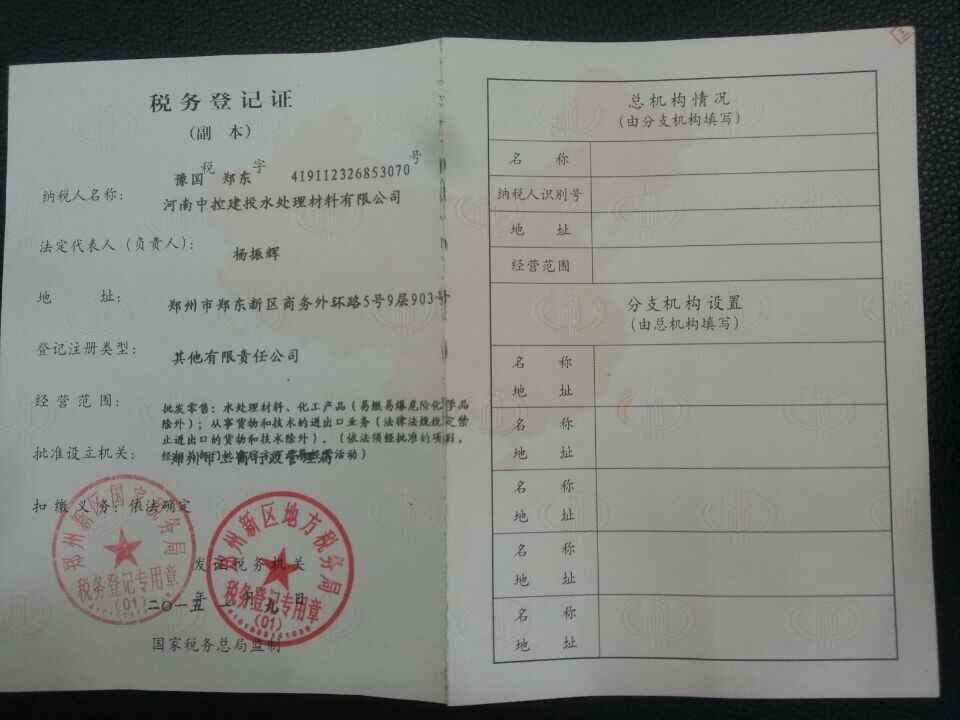 税务登记证
（副 本）
豫国税 郑东字 419112326853070号
纳税人名称：
河南中控建投水处理材料有限公司
法定代表人（负责人）：
杨振辉
地 址：
郑州市郑东新区商务外环路5号9层903号
登记注册类型：
其他有限责任公司
经营范围：
批发零售：水处理材料、化工产品（易燃易爆危险化学品
除外）；从事货物和技术的进出口业务（法律法规规定禁
止进出口的货物和技术除外）。（依法须经批准的项目，
批准设立机关：
郑州市工商行政管理局
扣缴义务：依法确定
郑州新区国家税务局
税务登记专用章
(01)
郑州新区地方税务局
税务登记专用章
(01)
4101008141030
发证税务机关
二〇一五年一月九日
国家税务总局监制
总机构情况
（由分支机构填写）
名 称
纳税人识别号
地 址
经营范围
分支机构设置
（由总机构填写）
名 称
地 址
名 称
地 址
名 称
地 址
名 称
地 址
名 称
地 址